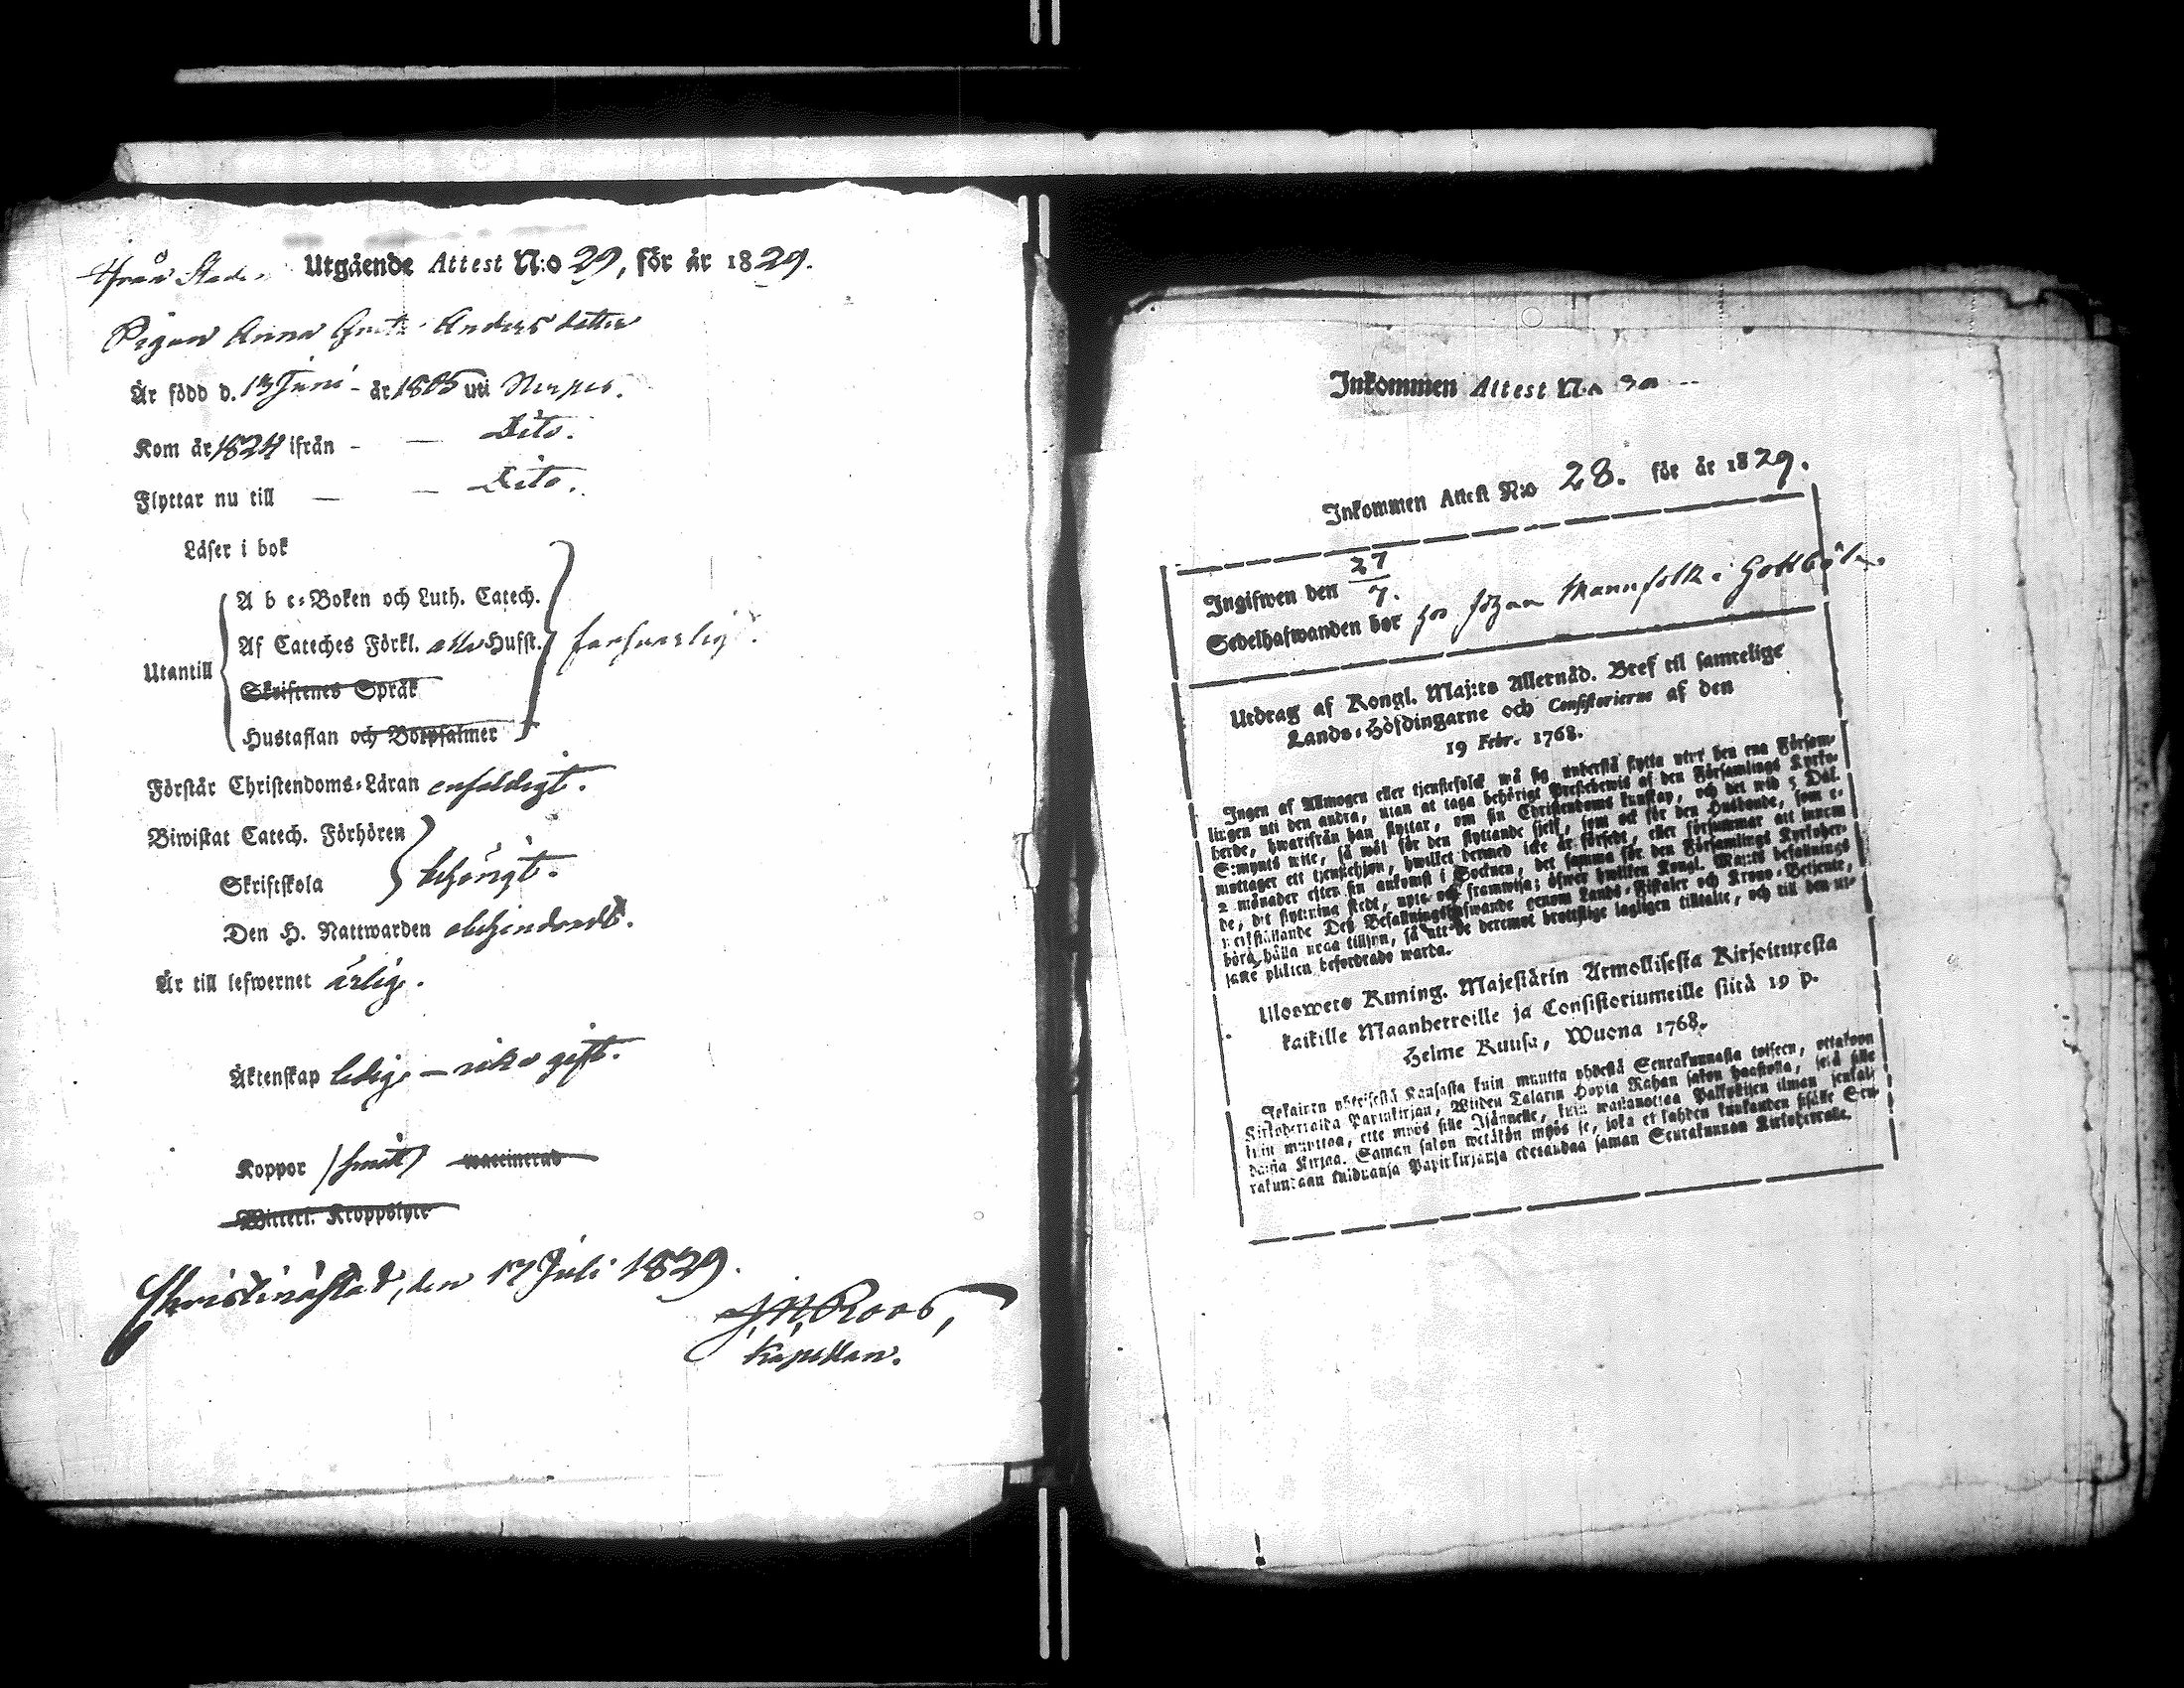 ifrån Staden Utgående Attest N:o 29, för år 1829.
Pigan Anna Greta Andersdotter
Är född d. 13 Juni - år 1805 uti Nerpes.
Kom år 1824 ifrån - — Dito.
Flyttar nu till — — Dito.
Läser i bok
Utantill
A b c-Boken och Luth. Catech.
Af Cateches Förkl. Husst. försvarligt.
Skriftenes Språk
Hustaflan och Botpsalmer
Förstår Christendoms-Läran enfaldigt.
Biwistat Catech. Förhören
Skriftskola behörigt.
Den H. Nattwarden
Är till lefwernet ärlig.
Äktenskap ledig — icke gift.
Koppor haft waccinerad
Witterl. Kroppslyte
Christinæstad, den 17 Juli 1829.
Roos,
Kapellan.
Inkommen Attest N:o
Inkommen Attest N:o 28. för år 1829.
Ingifwen den 27/7.
Sedelhafwanden bor hos Johan Mannfolk i Gottböle.
Utdrag af Kongl. Maj:ts Allernåd. Bref til samtelige
Lands-Höfdingarne och Consistorierne af den
19 Febr. 1768.
Ingen af Allmogen eller tjenstefolck må sig understå flytta utur den ena Försam-
lingen uti den andra, utan at taga behörigt Prestebewis af den Församlings Kyrko-
herde, hwarifrån han flyttar, om sin Christendoms kunskap, och det wid 5 Dal.
S:mynts wite, så wäl för den flyttande sjelf, som ock för den Husbonde, som e-
mottager ett tjenstehjon, hwilket dermed icke är försedt, eller försummar att innom
2 månader efter sin ankomst i Socknen, det samma för den Församlings Kyrkoher-
de, dit flyttning skedt, upte och framwisa; öfwer hwilken Kongl. Maj:ts befallnings
werkställande Deß Befallningshafwande genom Lands-Fiskaler och Krono-Betjente,
böra hålla noga tillsyn, så att de deremot brottslige lagligen tilltalte, och till den ut-
satte plikten befordrade warda.
Uloswets Kuning. Majestärin Armollisesta Kirjoituxesta
kaikille Maanherroille ja Consistoriumeille siitä 19 p.
Helme Kuusa, Wuona 1768.
Jokainen yhteisestä Kansasta kuin muutta yhdestä Seurakunnasta toiseen, ottakoon
Kirkoherralda Papinkirjan, Wiiden Talarin Hopia Rahan sakon haastolla, sekä sille
kuin muuttaa, ette myös sille Isännelle, kuin wastanottaa Palkollisen ilman senkal-
daista Kirjaa. Saman sakon wetäkön myös se, joka ei kahden kuukauden sisälle Seu-
rakundaan tulduansa Papinkirjansa edesandaa saman Seurakunnan Kirkoherralle.